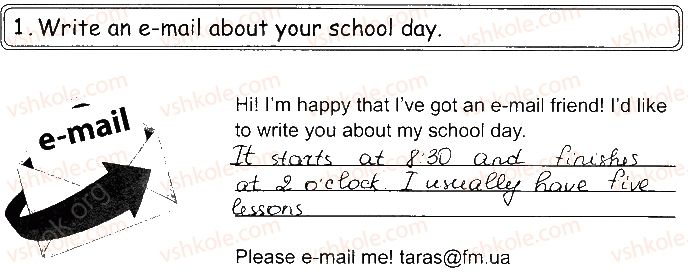 1. Write an e-mail about your school day.
e-mail
Hi! I'm happy that I've got an e-mail friend! I'd like
to write you about my school day.
It starts at 8:30 and finishes
at 2 o'clock. I usually have five
lessons
Please e-mail me! taras@fm.ua
vshkole.com